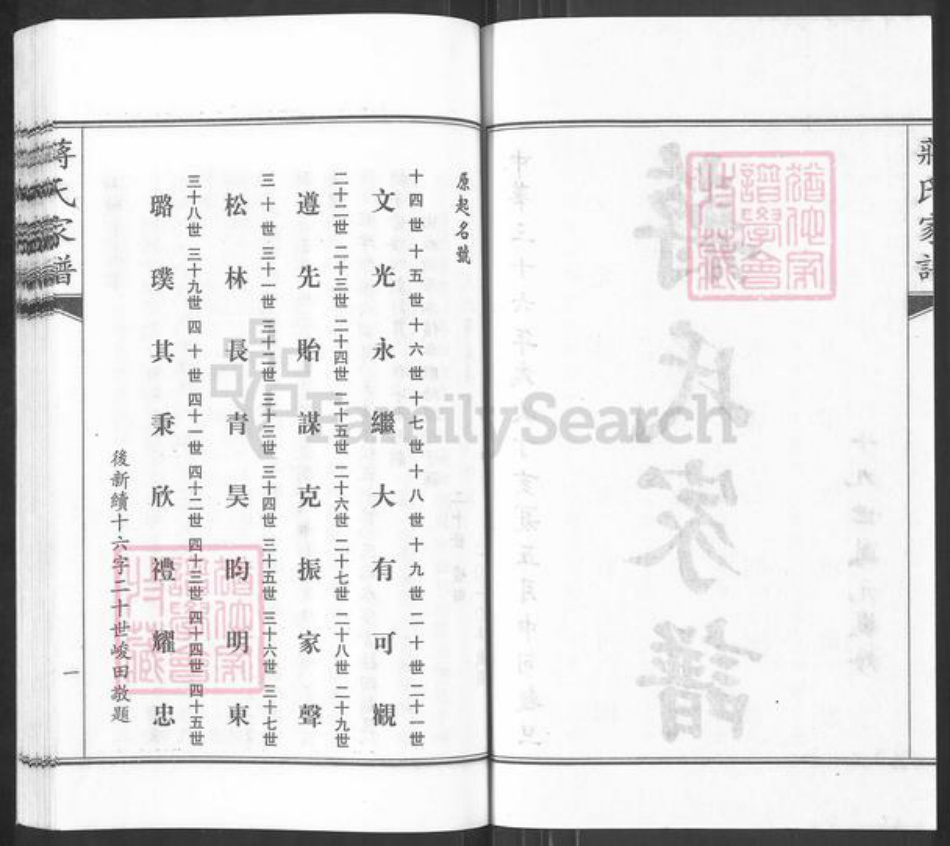 蔣氏家譜
原起名號
十四世 十五世 十六世 十七世 十八世 十九世 二十世 二十一世
文光永繼大有可觀
二十二世 二十三世 二十四世 二十五世 二十六世 二十七世 二十八世 二十九世
遵先貽謀克振家聲
三十世 三十一世 三十二世 三十三世 三十四世 三十五世 三十六世 三十七世
松林長青昊昀明東
三十八世 三十九世 四十世 四十一世 四十二世 四十三世 四十四世 四十五世
璐璞其秉欣禮耀忠
後新續十六字二十世峻田敬題
蔣氏家譜
一
FamilySearch